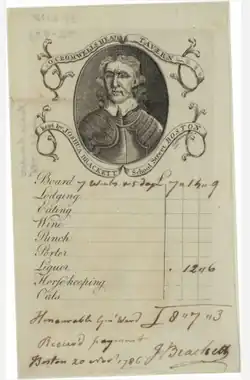 O. CROMWELL'S HEAD TAVERN
kept by JOSHUA BRACKETT School Street BOSTON
Board 7 Weeks & 5 days £ 7 " 14 " 9
Lodging
Eating
Wine
Punch
Porter
Liquor " 12 " 6
Horse keeping
Oats
Honourable Ward £ 8 " 7 " 3
Received payment
Boston 20 Novr. 1786 J Brackett